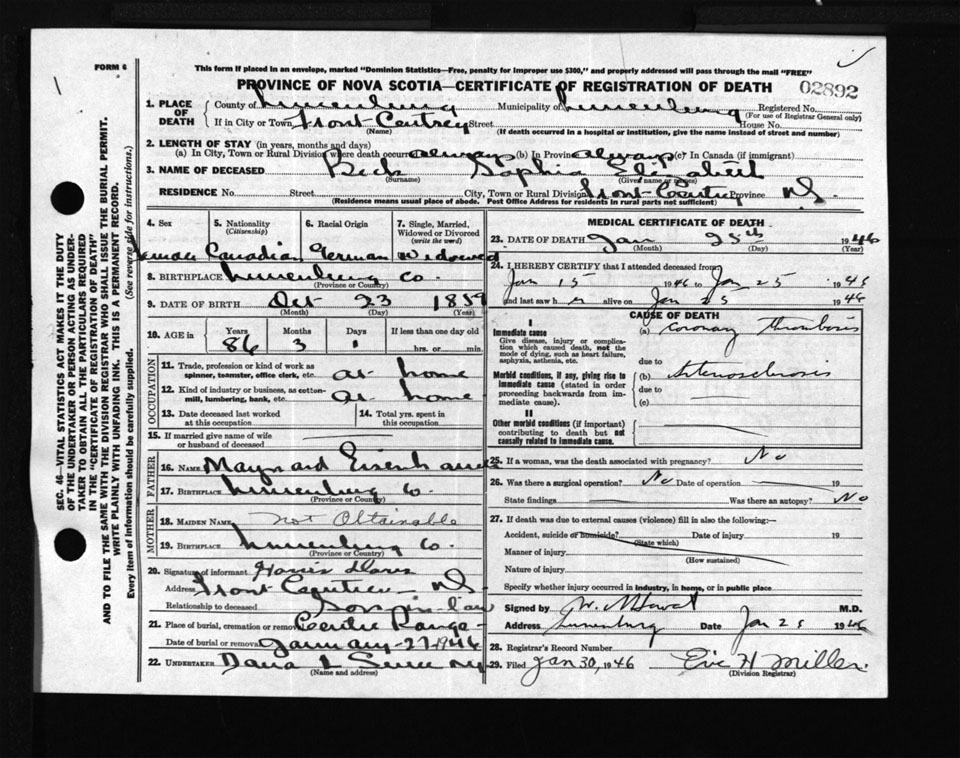 FORM 6
This form if placed in an envelope, marked "Dominion Statistics—Free, penalty for improper use $300," and properly addressed will pass through the mail "FREE"
PROVINCE OF NOVA SCOTIA—CERTIFICATE OF REGISTRATION OF DEATH
02892
1. PLACE OF DEATH
County of Lunenburg Municipality of Lunenburg Registered No.
(For use of Registrar General only)
If in City or Town, Street House No.
(Name) (If death occurred in a hospital or institution, give the name instead of street and number)
2. LENGTH OF STAY (in years, months and days)
(a) In City, Town or Rural Division where death occurred always (b) In Province always (c) In Canada (if immigrant)
3. NAME OF DECEASED Beck Sophia Elizabeth
(Surname) (Given name or names)
RESIDENCE No. Street City, Town or Rural Division Province N.S.
(Residence means usual place of abode. Post Office Address for residents in rural parts not sufficient)
4. Sex
Female
5. Nationality
(Citizenship)
Canadian
6. Racial Origin
German
7. Single, Married, Widowed or Divorced
(write the word)
Widowed
8. BIRTHPLACE Lunenburg Co.
(Province or Country)
9. DATE OF BIRTH Oct 23 1859
(Month) (Day) (Year)
10. AGE in Years Months Days If less than one day old
86 3 1 hrs. or min.
OCCUPATION
11. Trade, profession or kind of work as spinner, teamster, office clerk, etc. at home
12. Kind of industry or business, as cotton-mill, lumbering, bank, etc. at home
13. Date deceased last worked at this occupation
14. Total yrs. spent in this occupation
15. If married give name of wife or husband of deceased
FATHER
16. NAME Maynard Eisenhauer
17. BIRTHPLACE Lunenburg Co.
(Province or Country)
MOTHER
18. MAIDEN NAME not Obtainable
19. BIRTHPLACE Lunenburg Co.
(Province or Country)
20. Signature of informant
Address N.S.
Relationship to deceased Son-in-law
21. Place of burial, cremation or removal
Date of burial or removal January-27-1946
22. UNDERTAKER Dana L
(Name and address)
MEDICAL CERTIFICATE OF DEATH
23. DATE OF DEATH Jan 25th 1946
(Month) (Day) (Year)
24. I HEREBY CERTIFY that I attended deceased from
Jan 15 1946 to Jan 25 1946
and last saw h alive on Jan 25 1946
CAUSE OF DEATH
I
Immediate cause
Give disease, injury or complication which caused death, not the mode of dying, such as heart failure, asphyxia, asthenia, etc.
(a) Coronary thrombosis
due to
Morbid conditions, if any, giving rise to immediate cause (stated in order proceeding backwards from immediate cause).
(b) Arteriosclerosis
due to
(c)
II
Other morbid conditions (if important) contributing to death but not causally related to immediate cause.
25. If a woman, was the death associated with pregnancy? No
26. Was there a surgical operation? No Date of operation 19
State findings Was there an autopsy? No
27. If death was due to external causes (violence) fill in also the following:—
Accident, suicide or homicide? Date of injury 19
(State which)
Manner of injury
(How sustained)
Nature of injury
Specify whether injury occurred in industry, in home, or in public place
Signed by M.D.
Address Lunenburg Date Jan 25 1946
28. Registrar's Record Number
29. Filed Jan 30, 1946 H Miller
(Division Registrar)
SEC. 46—VITAL STATISTICS ACT MAKES IT THE DUTY OF THE UNDERTAKER OR PERSON ACTING AS UNDERTAKER TO OBTAIN ALL THE PARTICULARS REQUIRED IN THE "CERTIFICATE OF REGISTRATION OF DEATH"
AND TO FILE THE SAME WITH THE DIVISION REGISTRAR WHO SHALL ISSUE THE BURIAL PERMIT.
WRITE PLAINLY WITH UNFADING INK. THIS IS A PERMANENT RECORD.
Every item of information should be carefully supplied. (See reverse side for instructions.)